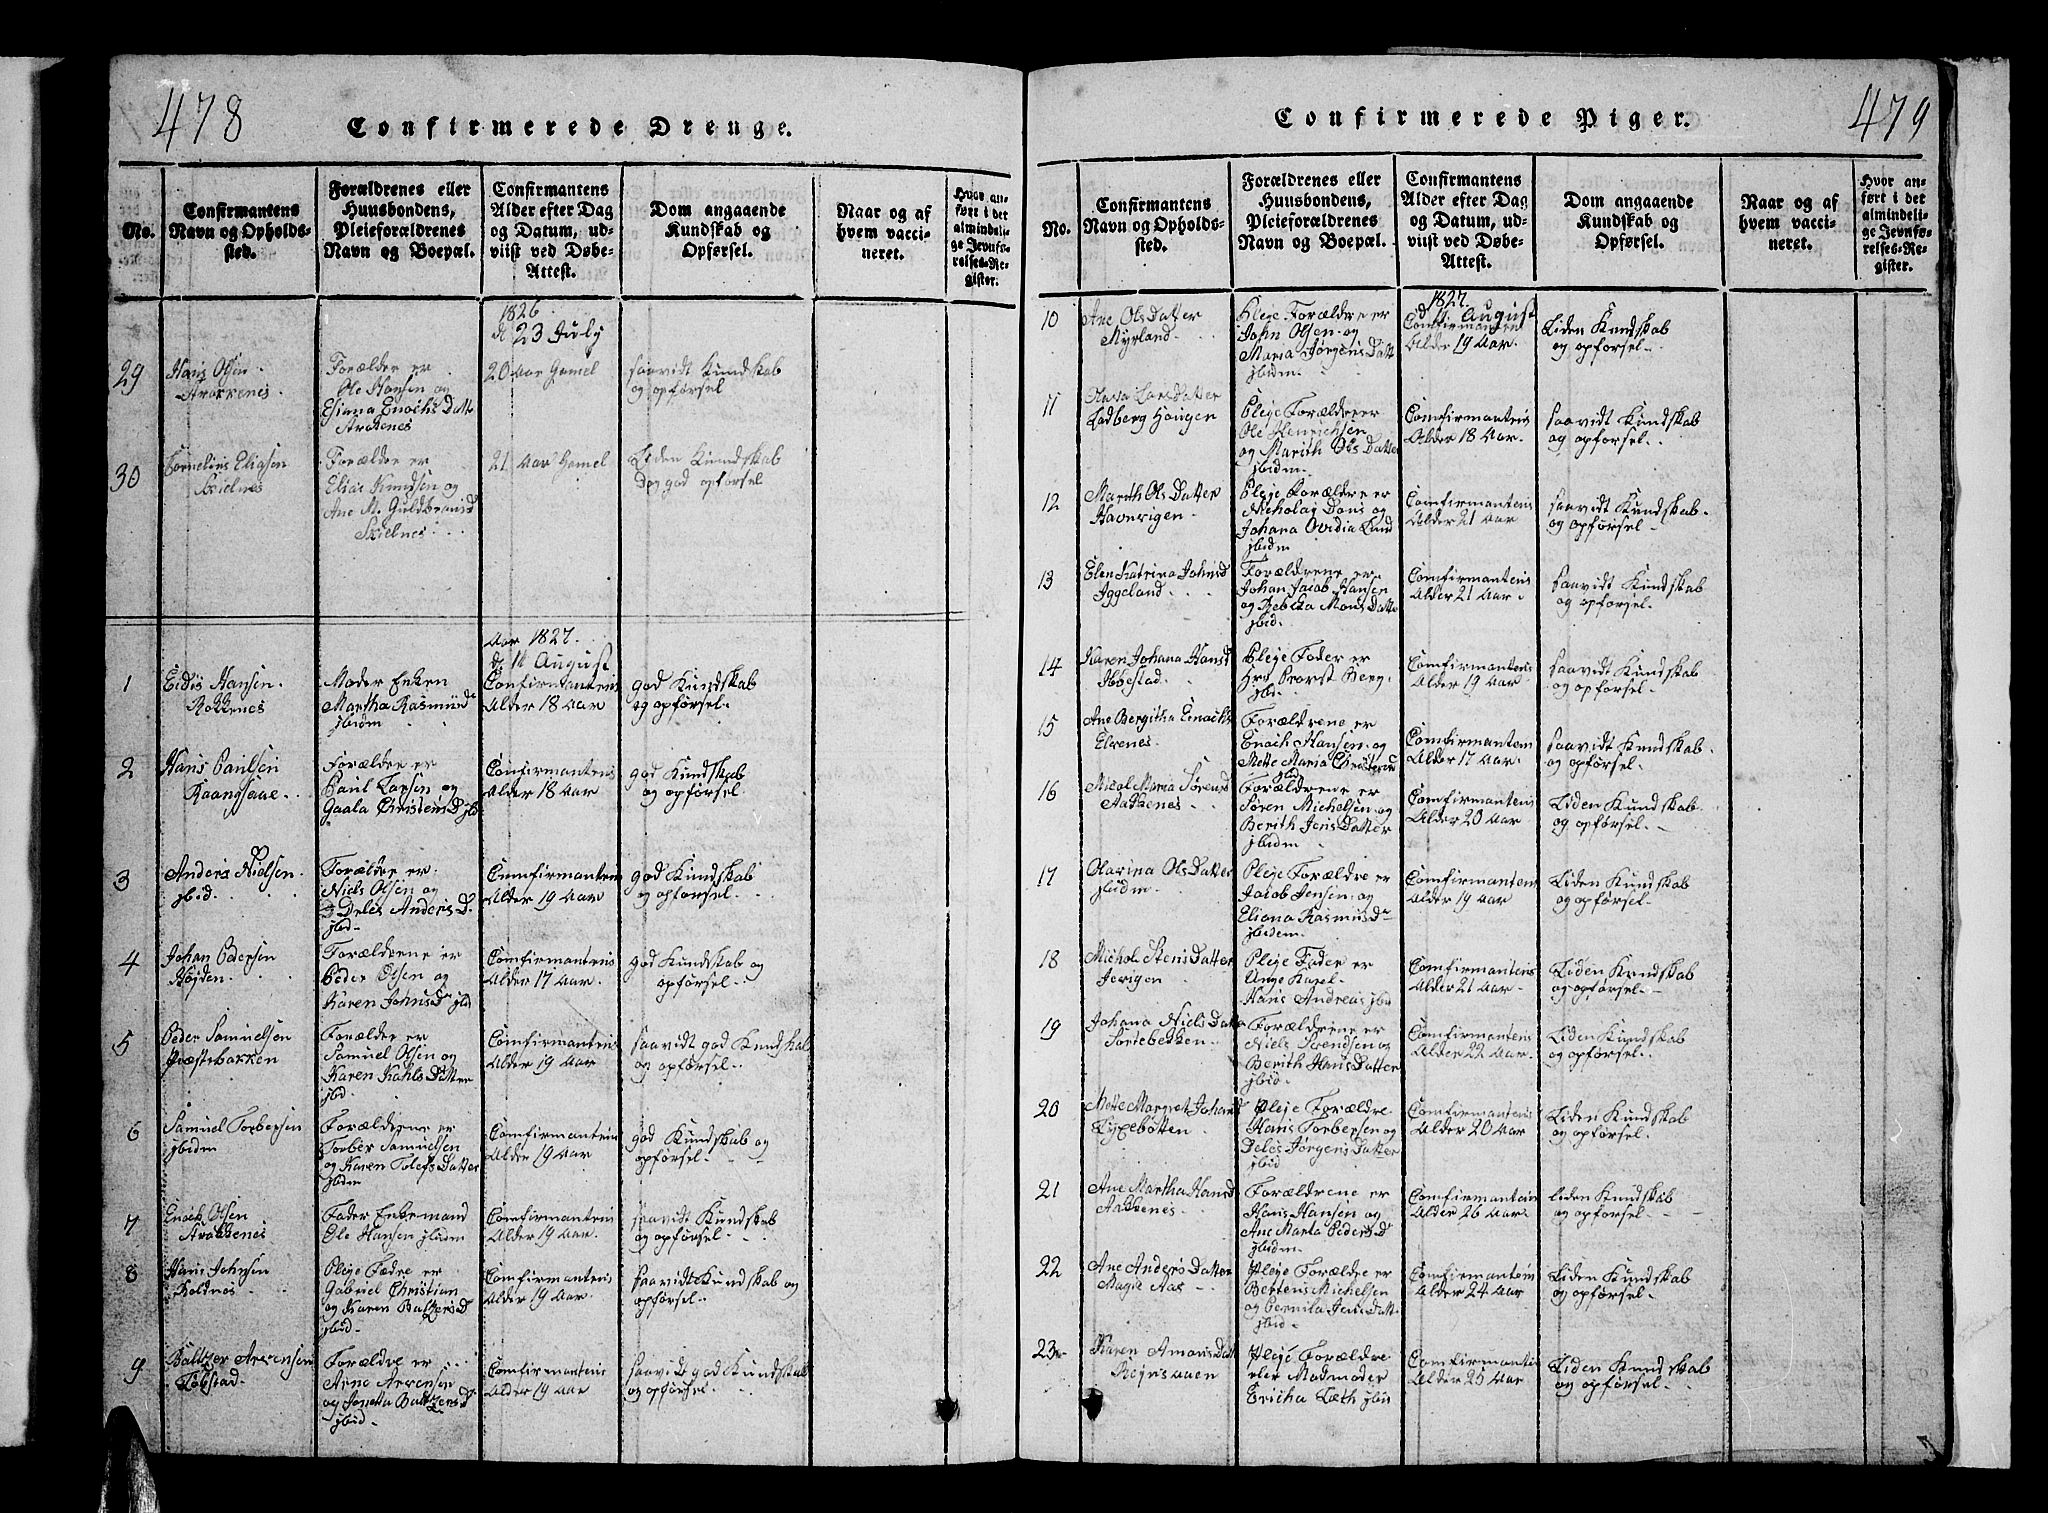 478
Confirmerede Drenge.
No.
Confirmantens
Navn og Opholds-
sted.
Forældrenes eller
Huusbondens,
Pleieforældrenes
Navn og Boepæl.
Confirmantens
Alder efter Dag
og Datum, ud-
viist ved Døbe-
Attest.
Dom angaaende
Kundskab og
Opførsel.
Naar og af
hvem vacci-
neret.
Hvor an-
ført i det
almindeli-
ge Jevnfø-
relses-Re-
gister.
1826
d 23 July
29
Hans Olsen
Forældre er
Ole Hansen og
Eliana Enochs Datt
20 Aar Gamel
saavidt Kundskab
og opførsel
30
Cornelius Eliasen
Skielnes
Forældre er
Elias Knudsen og
Ane M. Guldbransd
Skielnes
21 Aar Gamel
Liden Kundskab
Dog god opførsel
Aar 1827.
d. 11 August
1
Hansen
Rokkenes
Moder Enken
Martha Rasmusd
jbidm
Comfirmantens
Alder 18 Aar
god Kundskab
og opførsel.
2
Hans Paulsen
Forældre er
Paul Larsen og
Christensd jbd
Comfirmantens
Alder 18 Aar
god Kundskab
og opførsel.
3
Anders Nielsen
jbid.
Forældre er
Niels Olsen og
Deles Anders D.
jbd.
Comfirmantens
Alder 19 Aar
god Kundskab
og opførsel.
4
Johan Pedersen
Højden.
Forældrene er
Peder Olsen og
Karen Johnsdr jbd
Comfirmantens
Alder 17 Aar.
god Kundskab og
opførsel.
5
Peder Samuelsen
Præstebakken
Forældre er
Samuel Olsen og
Karen Kahls Datter
jbd.
Comfirmantens
Alder 19 Aar
saavidt god Kundskab
og opførsel.
6
Samuel Torbersen
jbidm
Forældrene er
Torber Samuelsen
og Karen Tolefs Datter
jbdm
Comfirmantens
Alder 19 Aar
god Kundskab og
opførsel.
7
Enoch Olsen
Fader Enkemand
Ole Hansen jbidm
Comfirmantens
Alder 19 Aar.
saavidt Kundskab
og opførsel.
8
Hans Johnsen
Roldnes
Pleje Fædre er
Gabriel Christian
og Karen Baltzersd
jbid.
Comfirmantens
Alder 19 Aar
saavidt Kundskab og
opførsel.
9
Baltzer Arensen
Løbstad.
Forældre er
Arne Arensen
og Jonetta Baltzersd
jbid.
Comfirmantens
Alder 19 Aar
saavidt god Kundskab
og opførsel
479
Confirmerede Piger.
No.
Confirmantens
Navn og Opholds-
sted.
Forældrenes eller
Huusbondens,
Pleieforældrenes
Navn og Boepæl.
Confirmantens
Alder efter Dag
og Datum, ud-
viist ved Døbe-
Attest.
Dom angaaende
Kundskab og
Opførsel.
Naar og af
hvem vacci-
neret.
Hvor an-
ført i det
almindeli-
ge Jevnfø-
relses-Re-
gister.
1827.
d 11 August
10
Ane Ols Datter
Myrland
Pleje Forældre er
John Olsen og
Maria Jørgens Datt
jbidm.
Comfirmantens
Alder 19 Aar.
Liden Kundskab
og opførsel.
11
Lars Datter
Ladberg Haugen
Pleje Forældre er
Ole Henrichsen
og Marith Ols Datter
jbidm.
Comfirmantens
Alder 18 Aar.
saavidt Kundskab
og opførsel.
12
Marith Ols Datter
Havnvigen
Pleje Forældre er
Nicholaj Dons og
Johana Ovidia Lund
jbidm
Comfirmantens
Alder 21 Aar
saavidt Kundskab
og opførsel
13
Elen Katrina Johnsd
Iggeland
Forældrene er
Johan Jacob Hansen
og Rebeka Mons Datter
jbid.
Comfirmantens
Alder 21 Aar.
saavidt Kundskab
og opførsel.
14
Karen Johana Hansd
Ibbestad.
Pleje Fader er
Hr. Provst Berg
jbid.
Comfirmantens
Alder 19 Aar.
saavidt Kundskab
og opførsel.
15
Ane Bergitha Enochs
Elvenes.
Forældrene er
Enoch Hansen og
Mette Maria
jbid
Comfirmantens
Alder 17 Aar.
saavidt Kundskab
og opførsel.
16
Nicol Maria Sørensd
Aakkenes
Forældrene er
Søren Michelsen og
Berith Jens Datter
jbidm.
Comfirmantens
Alder 20 Aar
Liden Kundskab.
og opførsel.
17
Olavina Ols Datter
jbidm
Pleje Forældre er
Jacob Jensen og
Eliana Rasmusdr
jbidem.
Comfirmantens
Alder 19 Aar
Liden Kundskab
og opførsel.
18
Stens Datter
Jevigen
Pleje Fader er
Unge Karel
Hans Andreas jbid
Comfirmantens
Alder 21 Aar
Liden Kundskab
og opførsel.
19
Johana Niels Datter
Sortebekken.
Forældrene er
Niels Svendsen og
Berith Hans Datter
jbid.
Comfirmantens
Alder 22 Aar.
Liden Kundskab
og opførsel.
20
Mette Margret Johansd
Pleje Forældre
Hans Torbersen og
Deles Jørgens Datter
jbid
Comfirmantens
Alder 20 Aar
Liden Kundskab
og opførsel.
21
Ane Martha Hansd
Aakkenes.
Forældrene er
Hans Hansen og
Ane Marta Pedersd
jbidm.
Comfirmantens
Alder 26 Aar.
liden Kundskab
og opførsel.
22
Ane Anders Datter
Pleje Forældre er
Bertens Michelsen
og Pernila Jens Datt
jbid.
Comfirmantens
Alder 24 Aar
Liden Kundskab
og opførsel.
23
Karen Amons Datt
Pleje Forældre
eler Madmoder
Ericha Læth jbid
Comfirmantens
Alder 25 Aar
Liden Kundskab
og opførsel.